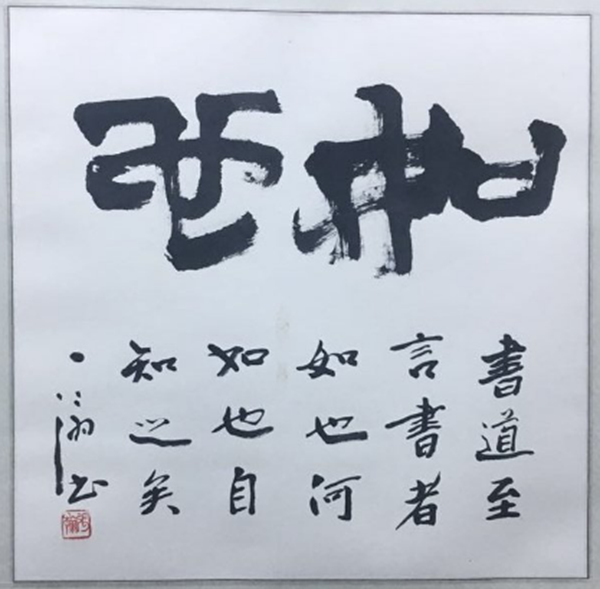 如
書道至
言書者
如也何
如也自
知之矣